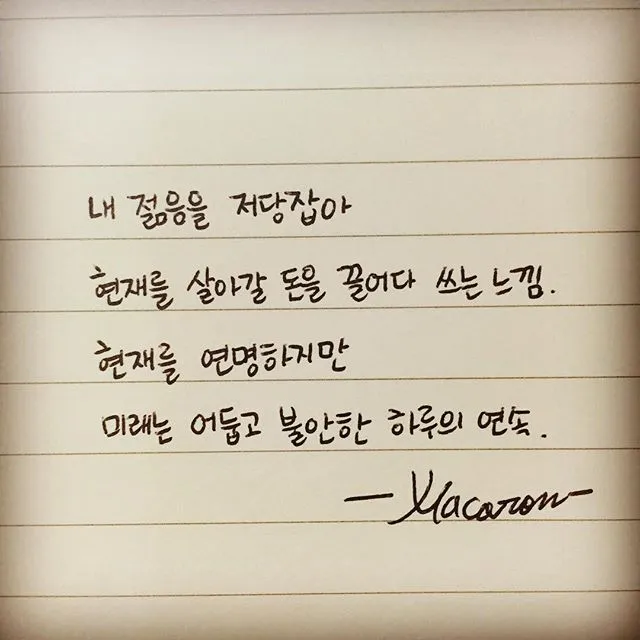 내 젊음을 저당잡아
현재를 살아갈 돈을 끌어다 쓰는 느낌.
현재를 연명하지만
미래는 어둡고 불안한 하루의 연속.
-Macaron-